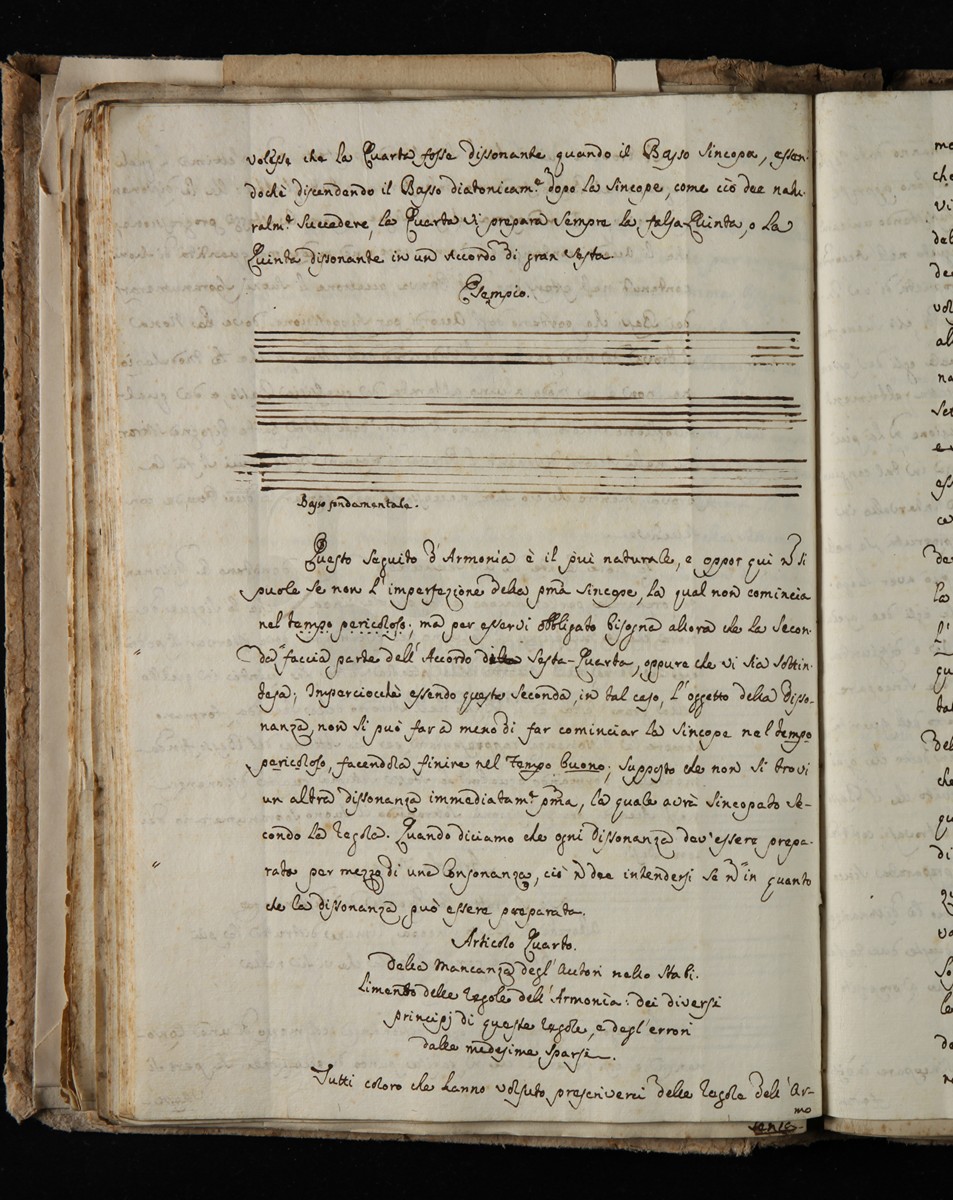 volesse che la Quarta fosse dissonante quando il Basso sincopa, essen-
dochè discendendo il Basso diatonicam.e dopo la sincope, come ciò dee natu-
ralm.e succedere, la Quarta vi prepara sempre la falsa-Quinta, o la
Quinta dissonante in un Accordo di gran Sesta.
Esempio.
Basso fondamentale.
Questo seguito d'Armonia è il piui naturale, e oppor qui ñ si
puole se non l'imperfezione della pma sincope, la qual non comincia
nel tempo pericoloso; ma per esservi obbligato bisogna allora che la secon-
da faccia parte dell'Accordo Sesta-Quarta, oppure che vi sia sottin-
tesa; Imperciocchè essendo questa seconda, in tal caso, l'oggetto della disso-
nanza, non si può far a meno di far cominciar la sincope nel tempo
pericoloso, facendola finire nel Tempo buono; supposto che non si trovi
un altra dissonanza immediatam.e pma, la quale avrà sincopato se-
condo la regola. Quando diciamo che ogni dissonanza dev'essere prepa-
rata per mezzo di una Consonanza, ciò ñ dee intendersi se ñ in quanto
che la dissonanza può essere preparata.
Articolo Quarto.
Della Mancanza degl'Autori nello Stabi-
limento delle regole dell'Armonia: dei diversi
principj di queste regole, e degl'errori
dalle medesime sparsi.
Tutti coloro che hanno volsuto prescriverci delle regole dell'Ar-
mo